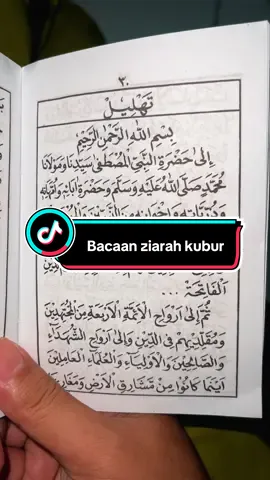 ٣٠
تَهْلِيْل
بِسْمِ اللهِ الرَّحْمٰنِ الرَّحِيْمِ
اِلَى حَضْرَةِ النَّبِيِّ الْمُصْطَفَى سَيِّدِنَا وَمَوْلَانَا
مُحَمَّدٍ صَلَّى اللهُ عَلَيْهِ وَسَلَّمَ وَحَضْرَةِ اٰبَائِهِ وَاُمَّهَاتِهِ
Bacaan ziarah kubur
اَلْفَاتِحَةَ ...
ثُمَّ اِلَى اَرْوَاحِ الْاَئِمَّةِ الْاَرْبَعَةِ مِنَ الْمُجْتَهِدِيْنَ
وَمُقَلِّدِيْهِمْ فِى الدِّيْنِ وَاِلَى اَرْوَاحِ الشُّهَدَاءِ
وَالصَّالِحِيْنَ وَالْاَوْلِيَاءِ وَالْعُلَمَاءِ الْعَامِلِيْنَ
اَيْنَمَا كَانُوْا مِنْ مَشَارِقِ الْاَرْضِ وَمَغَارِبِهَا